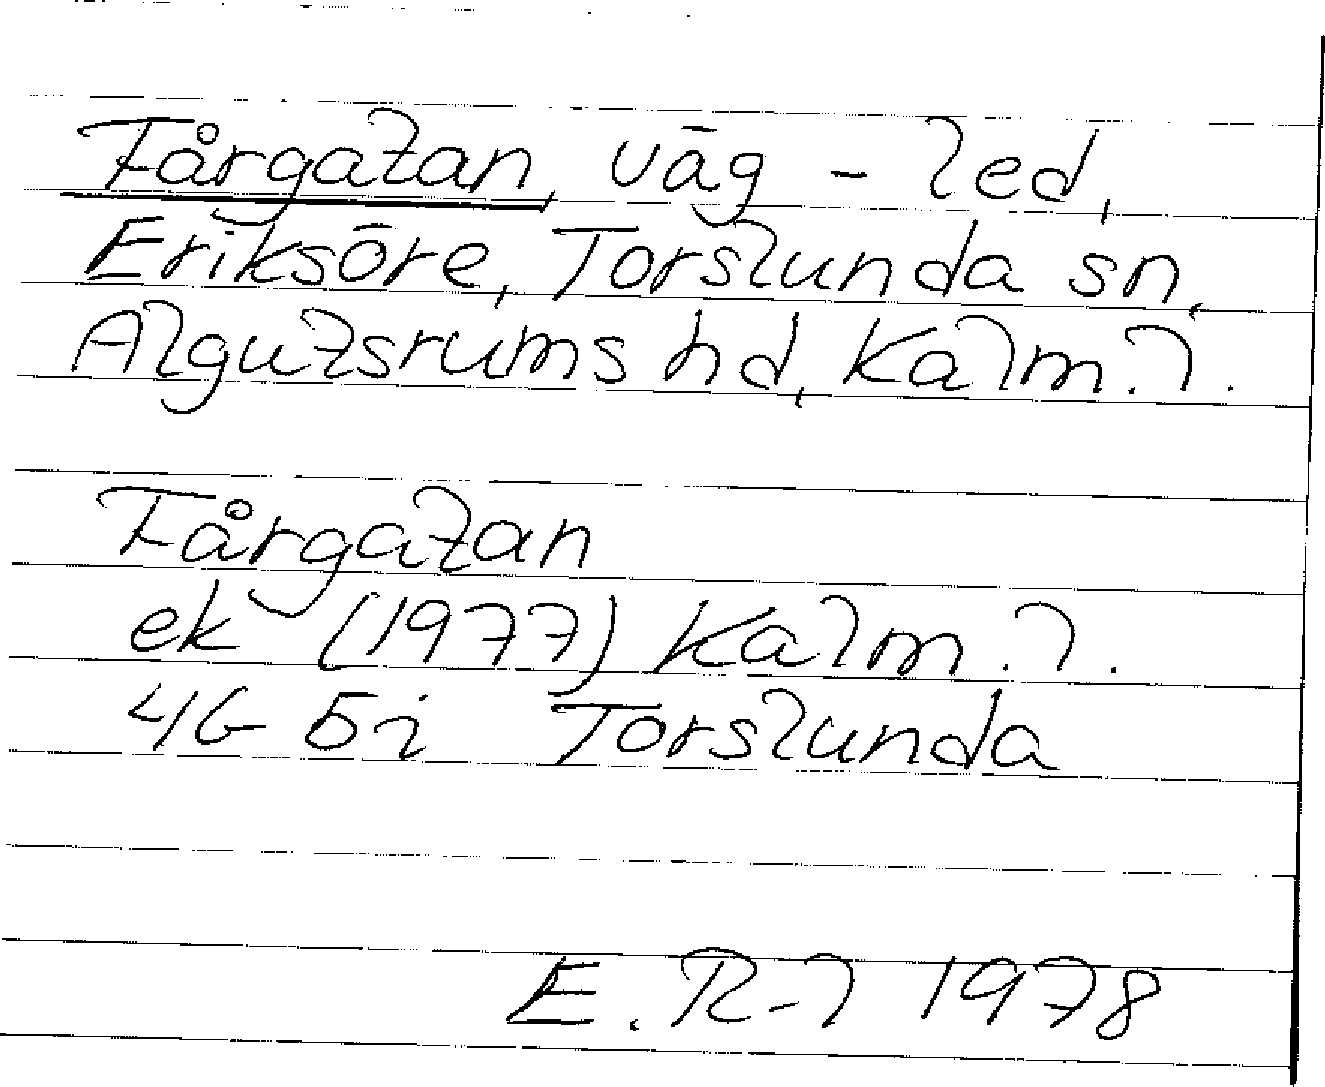 Fårgatan, väg - led,
Eriksöre, Torslunda sn,
Algutsrums hd, Kalm. l.
Fårgatan
ek (1977) Kalm. l.
4G 5i Torslunda
E. R-l 1978